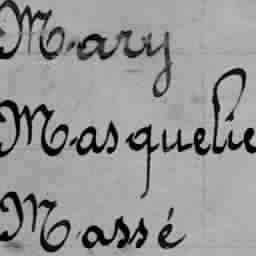 Mary
Masquelie
Massé